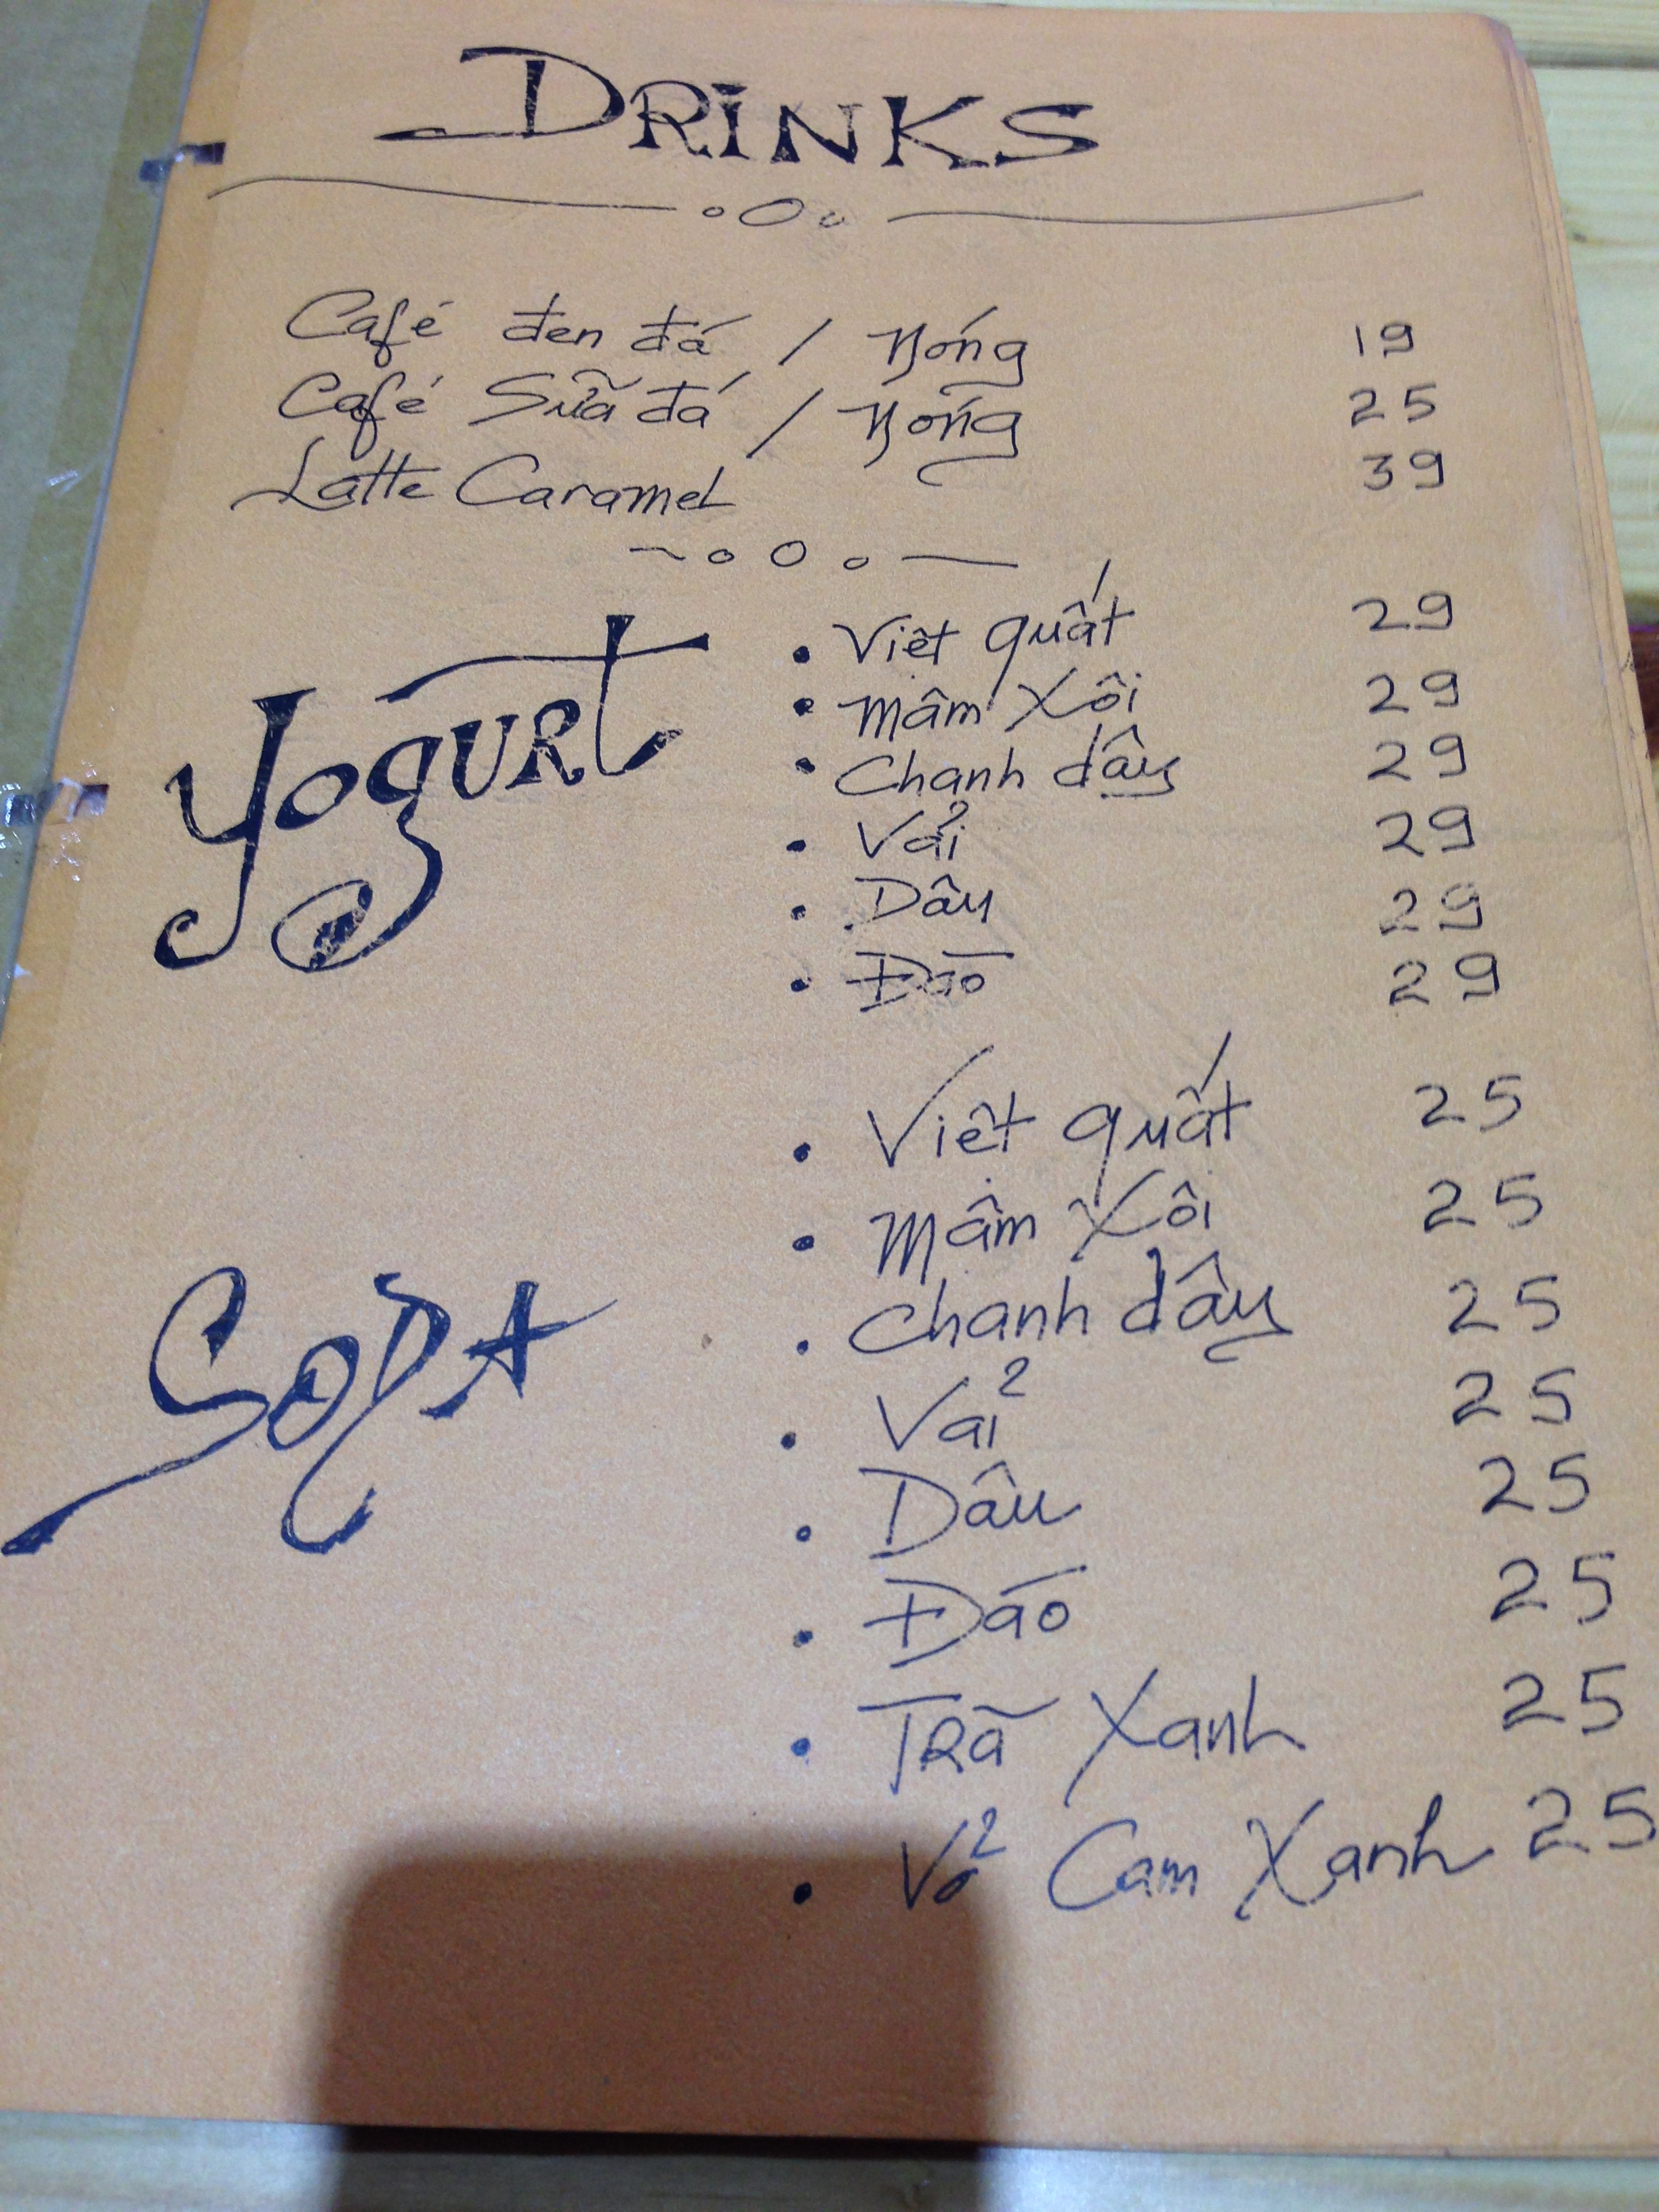 DRINKS
Café đen đá / Nóng 19
Café Sữa đá / Nóng 25
Latte Caramel 39
Yogurt
• Việt quất 29
• Mâm Xôi 29
• Chanh dây 29
• Vải 29
• Dâu 29
• Đào 29
SODA
• Việt quất 25
• Mâm Xôi 25
• Chanh dây 25
• Vải 25
• Dâu 25
• Đào 25
• Trà Xanh 25
• Vỏ Cam Xanh 25